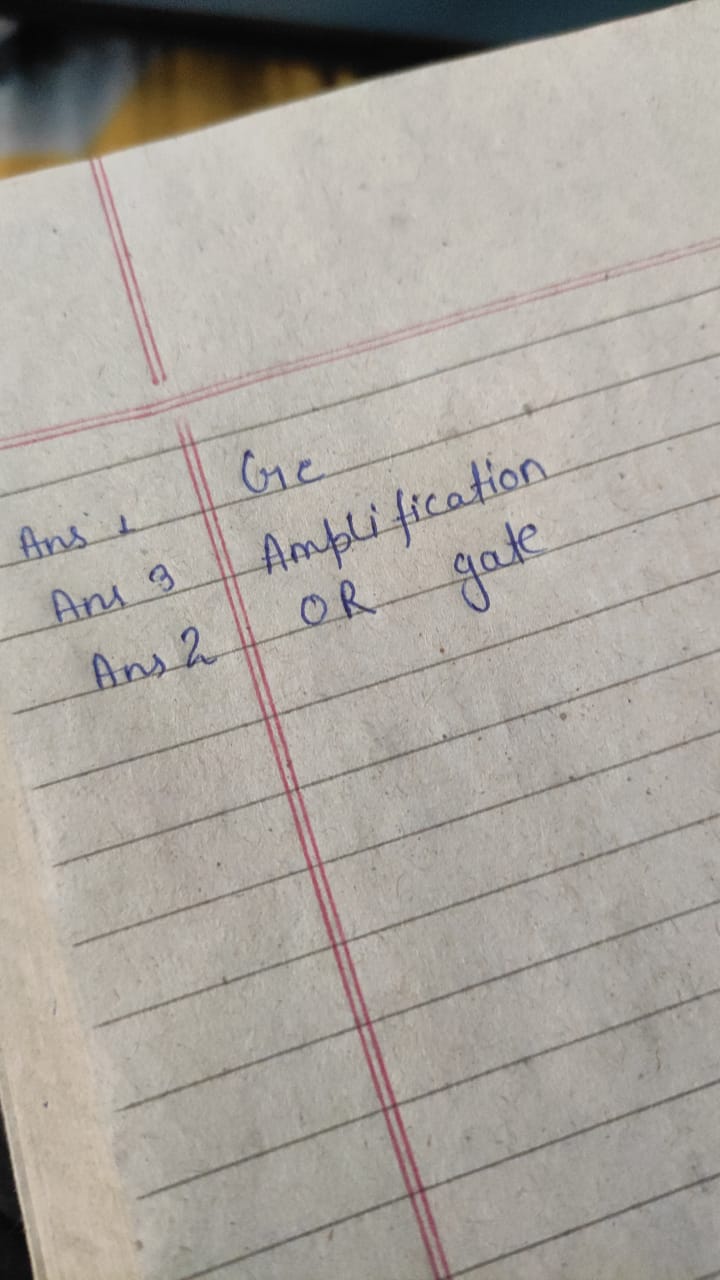 Ans 1 Ge
Ans 3 Amplification
Ans 2 OR gate